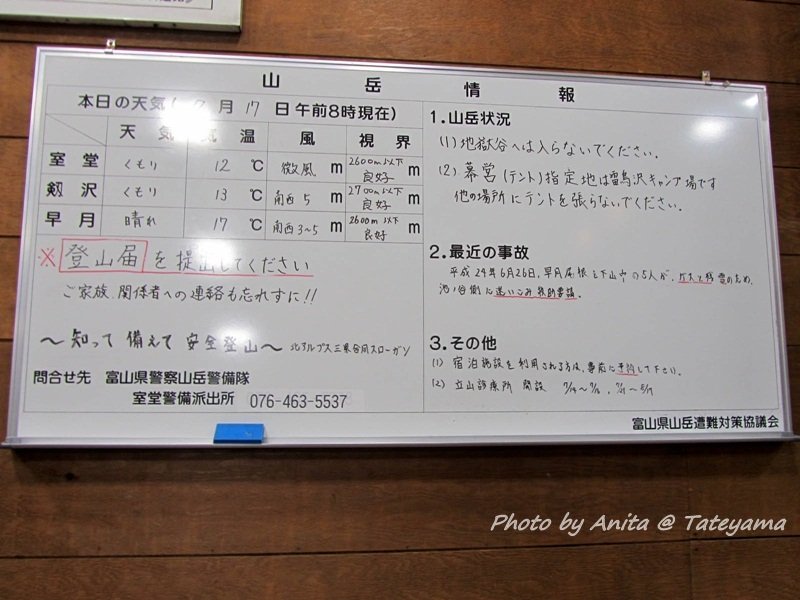 山岳情報
本日の天気(7月17日午前8時現在)
天気 気温 風 視界
室堂 くもり 12℃ 微風 m 2600m以下 良好 m
剱沢 くもり 13℃ 南西5 m 2700m以下 良好 m
早月 晴れ 17℃ 南西3~5 m 2600m以下 良好 m
※登山届を提出してください
ご家族、関係者への連絡も忘れずに!!
~知って備えて安全登山~ 北アルプス三県合同スローガン
問合せ先 富山県警察山岳警備隊
室堂警備派出所 076-463-5537
1.山岳状況
(1)地獄谷へは入らないでください.
(2)幕営(テント)指定地は雷鳥沢キャンプ場です
他の場所にテントを張らないでください。
2.最近の事故
平成24年6月26日,早月尾根を下山中の5人が、ガスと残雪のため、
池ノ谷側に迷いこみ救助要請。
3.その他
(1)宿泊施設を利用される方は、事前に予約して下さい。
(2)立山診療所 開設
富山県山岳遭難対策協議会
Photo by Anita @ Tateyama